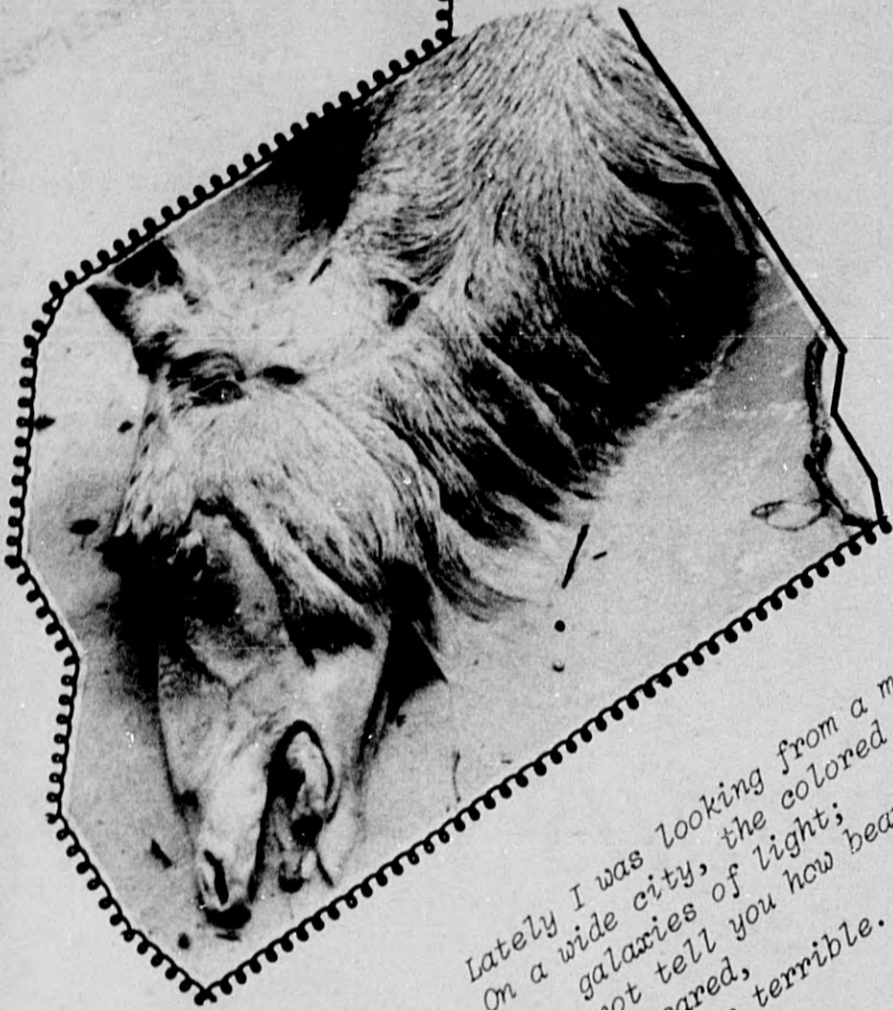 Lately I was looking from a
On a wide city, the colored
galaxies of light;
tell you how
terrible.